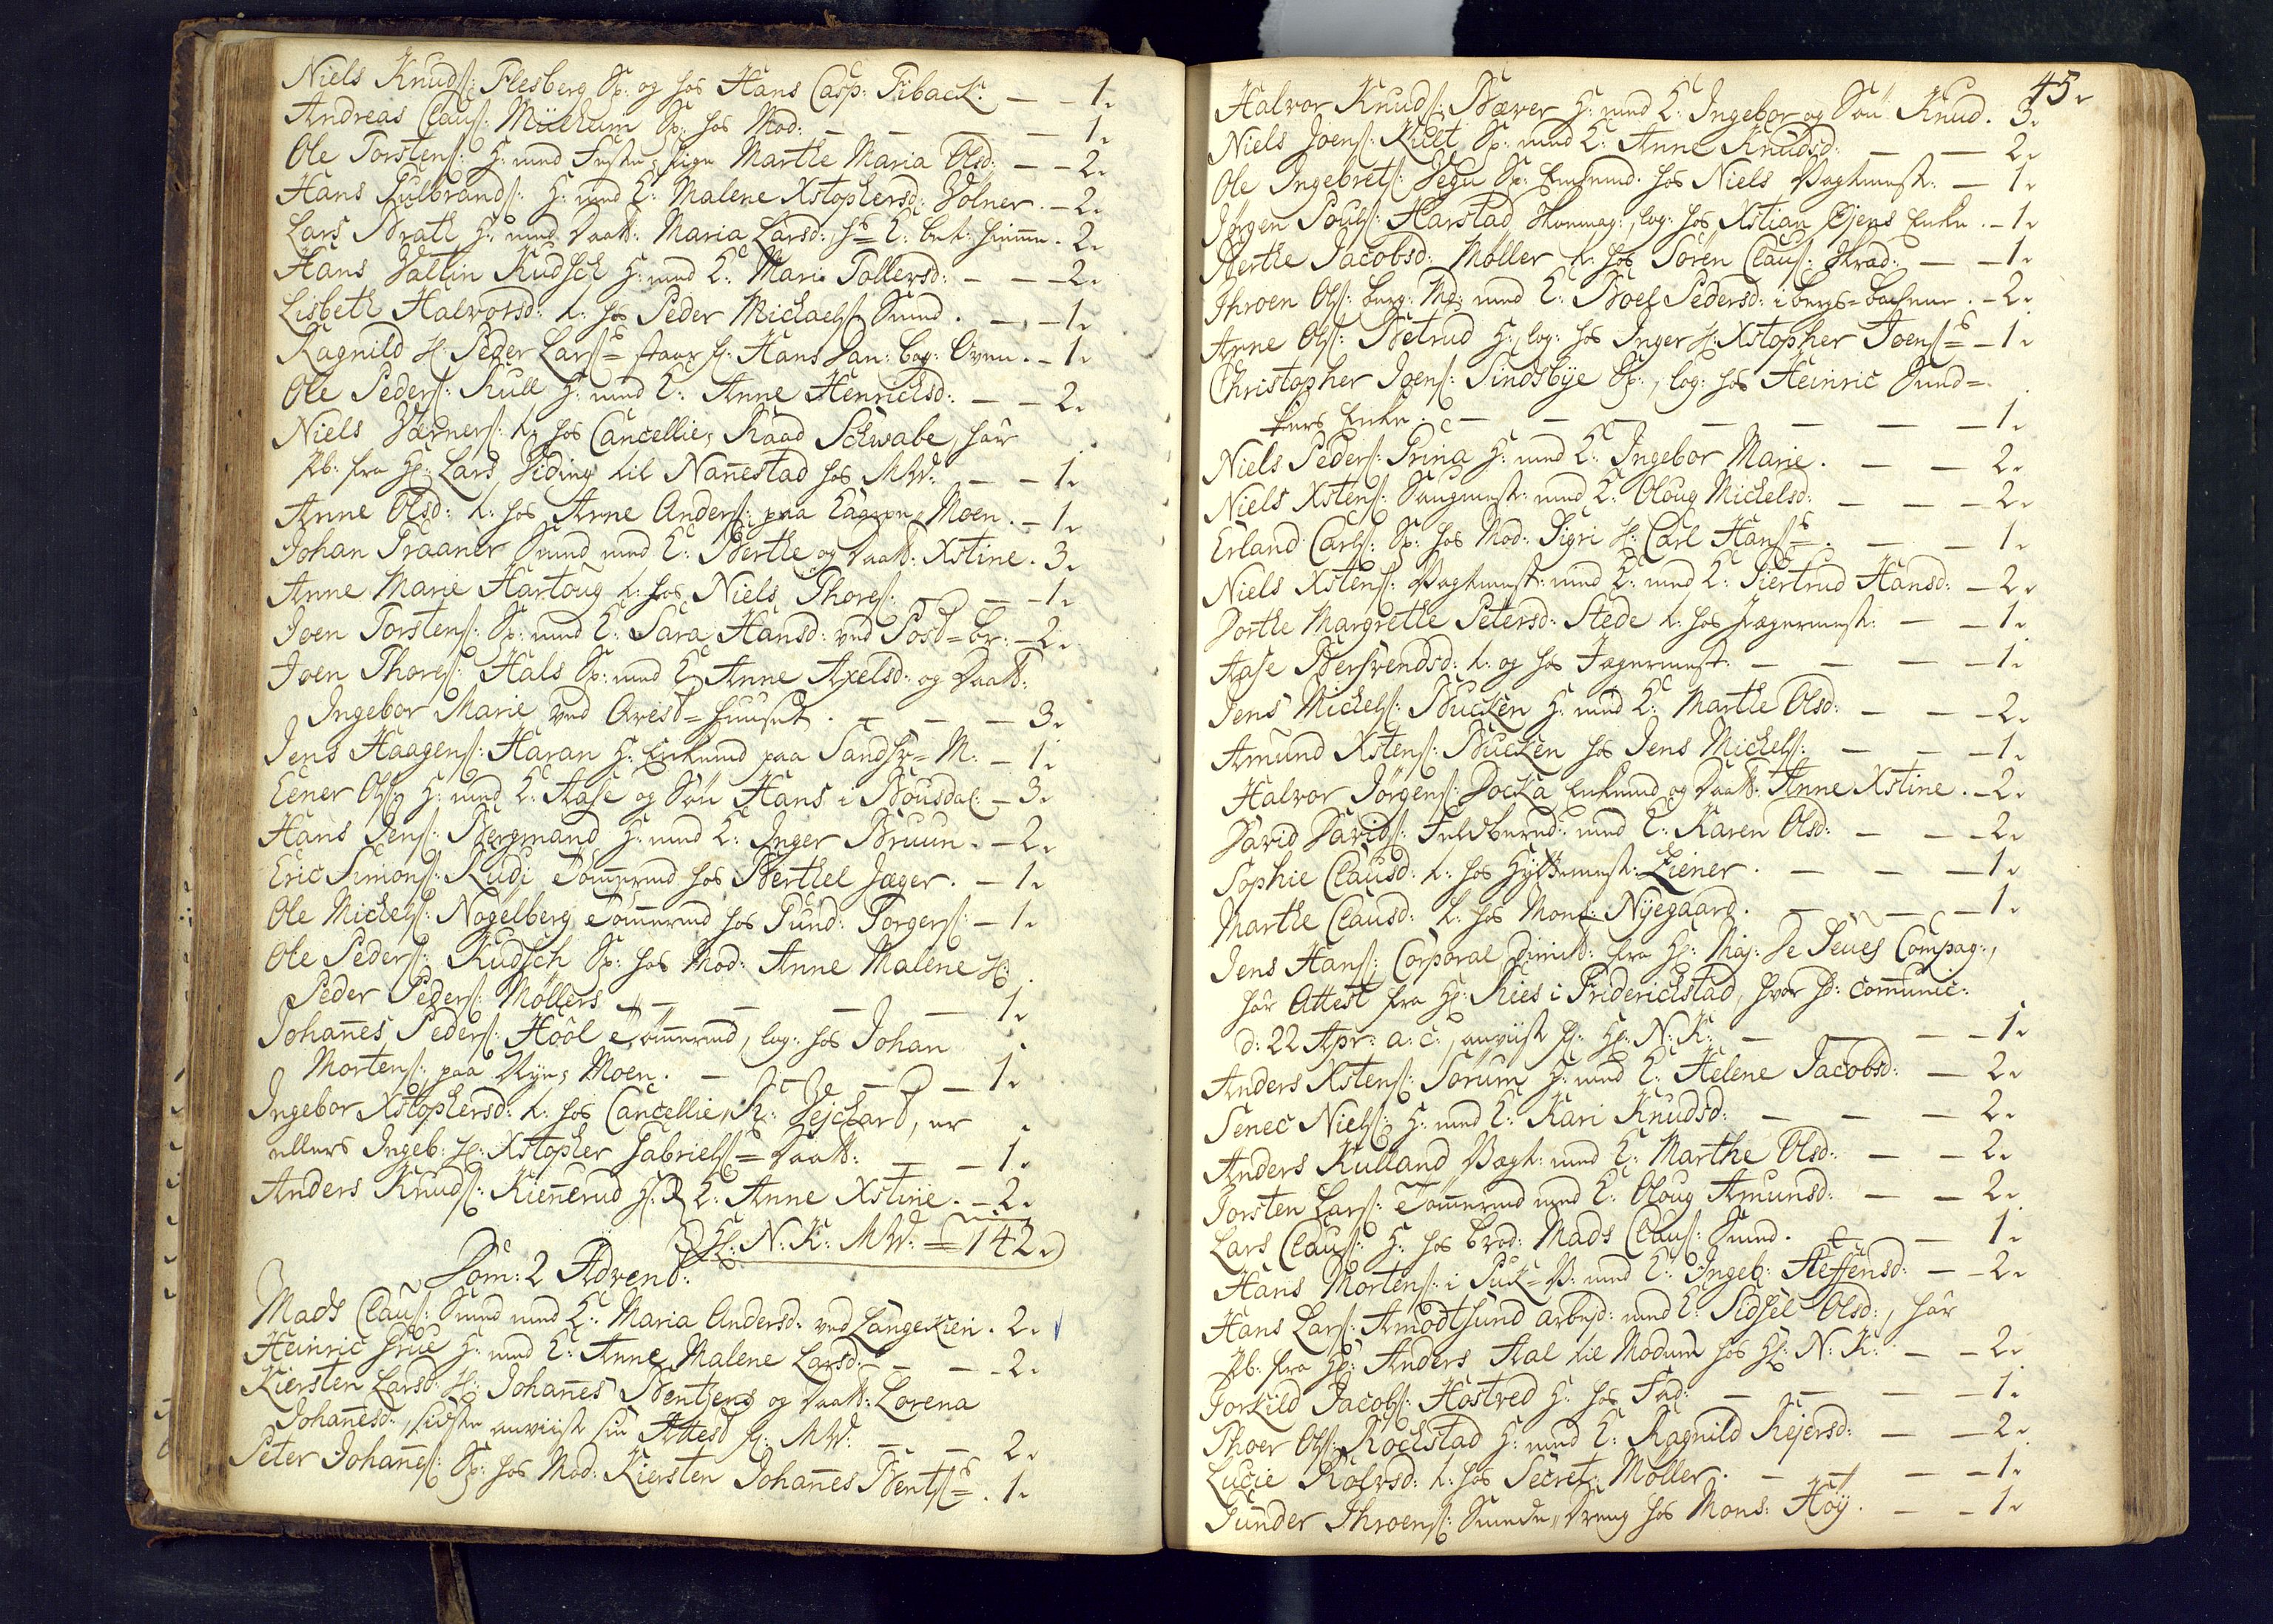 Niels Knuds: Flesberg Sp: og hos Hans Casp: Fiback. — — 1.
Andreas Claus: Sp: hos Mod: — — — 1.
Ole Torstens: H: med Feste-Pige Marthe Maria Olsd: — — 2.
Hans Gulbrands: H: med K: Malene Xstophersd: Wölner. — 2.
Lars Brath H: med Daatt: Maria Larsd:, K: hiemme. 2.
Hans Vallin Kudsch H: med K: Mari Tollersd: — — 2.
Lisbeth Halvorsd: t: hos Peder Michaels: Smed. — — 1.
Ragnild H: Peder Lars: staar f: Hans Dan: Bag: Oven. — 1.
Ole Peders: Kull H: med K: Anne Henrichsd: — — 2.
Niels Værners: t: hos Cancellie-Raad Schwabe, har
Pb: fra Hr: Lars Siding til Nanestad hos MW: — — 1.
Anne Olsd: t: hos Arne Anders: paa Moen. — 1.
Johan Traaner Smed med K: Berthe og Daatt: Xstine. 3.
Anne Marie Hartoug t: hos Niels Thores: — — 1.
Joen Torstens: Sp: med K: Sara Hansd: ved Post-br: — 2.
Joen Thores: Hals Sp: med K: Anne Axelsd: og Daatt:
Ingebor Marie ved Arest-huuset. — — — 3.
Jens Haagens: Haran H: Enkemd paa Sandsv: M: — 1.
Eener Ols: H: med K: Aase og Søn Hans i Bousdal: — 3.
Hans Jens: Bergmand H: med K: Inger Bruun. — 2.
Eric Simons: Rudi Tømermd hos Berthel Jæger. — 1.
Ole Michels: Nogelberg Tømermd hos Gund: Torgers: — 1.
Ole Peders: Kudsch Sp: hos Mod: Anne Malene H:
Peder Peders: Møllers — — — 1.
Johanes Peders: Hool Tømermd, log: hos Johan
Mortens: paa Nye-Moen. — — — 1.
Ingebor Xstophersd: t: hos Cancellie-R: Wejchart, er
ellers Ingeb: H: Xstopher Gabriels: Daatt: — — 1.
Anders Knuds: Kiennerud H: & K: Anne Xstine. — 2.
Hr: N: K: MW: = 142.
Dom: 2 Advent:
Mads Claus: Smed med K: Maria Andersd: ved Langekien. 2.
Heinric Grue H: med K: Anne Malene Larsd: — — 2.
Kiersten Larsd: H: Johanes Bentsens og Daatt: Lorena
Johanesd:, sidste anviist sin Attest f: MW: — — 2.
Peter Johanes: Sp: hos Mod: Kiersten Johanes Bents: . 1.
45.
Halvor Knuds: Bæver H: med K: Ingebor og Søn Knud. 3.
Niels Joens: Kilet Sp: med K: Anne Knudsd: — — 2.
Ole Ingebrets: Vegu Sp: Enkemd: hos Niels Vagtmest: — 1.
Jørgen Pouls: Harstad Skomag:, log: hos Xstian Øjens Enke. — 1.
Berthe Jacobsd: Møller t: hos Søren Claus: Skrad: — — 1.
Throen Ols: berg: Md: med K: Boel Pedersd: i bergs-backene. — 2.
Arne Ols: Betrud H:, log: hos Inger H: Xstopher Joens: — 1.
Christopher Joens: Sindsbye Sp:, log: hos Heinric Smed-
Enke. — — — — — 1.
Niels Peders: Prina H: med K: Ingebor Marie. — — 2.
Niels Xstens: Saugmest: med K: Oloug Michelsd: — — 2.
Erland Carls: Sp: hos Mod: Sigri H: Carl Hans: — — 1.
Niels Xstens: Vagtmest: med K: med K: Siertrud Hansd: — 2.
Dorthe Margrethe Petersd: Stede t: hos Jægermest: — — 1.
Aase Bersvendsd: t: og hos Jægermest: — — — 1.
Jens Michels: Bucken H: med K: Marthe Olsd: — — 2.
Amund Xstens: Bucken hos Jens Michels: — — 1.
Halvor Jørgens: Docka Enkemd og Daatt: Anne Xstine. — 2.
David Davids: med K: Karen Olsd: — — 2.
Sophie Clausd: t: hos Hyttemest: Ziener. — — — 1.
Marthe Clausd: t: hos Mons: Nyegaard. — — — 1.
Jens Hans: Corporal dimit: fra Hr: Maj: De Seues Compag:,
har Attest fra Hr: Ries i Friderichstad, hvor hd: comunic:
d: 22 Apr: a: c:, anviist f: Hr: N: K: — — — 1.
Anders Xstens: Sørum H: med K: Helene Jacobsd: — 2.
Senec Niels: H: med K: Kari Knudsd: — — — 2.
Anders Kulland Vagt: med K: Marthe Olsd: — — 2.
Torsten Lars: Tømermd med K: Oloug Amunsd: — — 2.
Lars Claus: H: hos Brod: Mads Claus: Smed. — — 1.
Hans Mortens: i Puk-V: med K: Ingeb: Steffensd: — — 2.
Hans Lars: Amodtsund arbejd: med K: Sidsel Olsd:, har
Pb: fra Hr: Anders Aal til Modum hos Hr: N: K: — — 2.
Torkild Jacobs: Hostved H: hos Fad: — — — 1.
Thoer Ols: Rockstad H: med K: Ragnild Rejersd: — — 2.
Lucie Rolvsd: t: hos Secret: Møller. — — — 1.
Gunder Throens: Smede-Dreng hos Mons: Høy. — — 1.